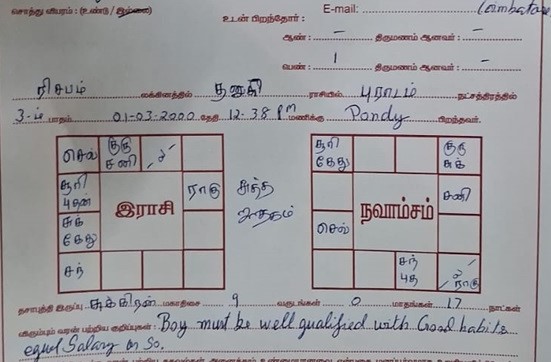 சொத்து விபரம் : (உண்டு / இல்லை)
E-mail:
Coimbatore
உடன் பிறந்தோர் :
ஆண் : – திருமணம் ஆனவர் : –
பெண் : 1 திருமணம் ஆனவர் : –
ரிசபம் லக்கினத்தில் தனுசு ராசியில் பூராடம் நட்சத்திரத்தில்
3-ம் பாதம் 01-03-2000 தேதி 12-38 PM மணிக்கு Pondy பிறந்தவர்.
செல் குரு சனி
சூரி கேது குரு சுக்
சூரி புதன் ராகு சுத்த சனி
இராசி ஜாதகம் நவாம்சம்
சுக் கேது செல்
சந் சந் புத ராகு
தசாபுத்தி இருப்பு சுக்கிரன் மகாதிசை 9 வருடங்கள் 0 மாதங்கள் 17 நாட்கள்
விரும்பும் வரன் பற்றிய குறிப்புகள் : Boy must be well qualified with Good habits
equal Salary or So.